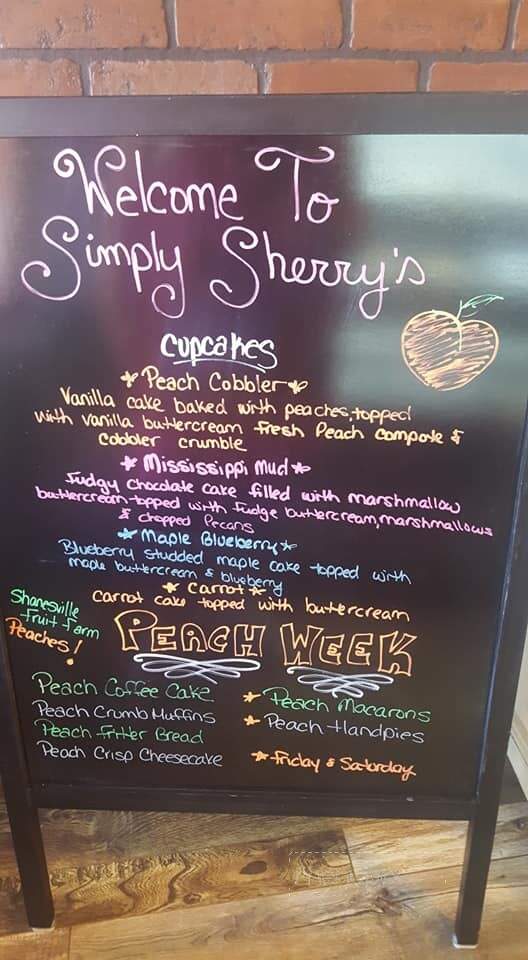 Welcome To
Simply Sherry's
Cupcakes
Peach Cobbler
Vanilla cake baked with peaches, topped
with vanilla buttercream fresh Peach compote &
cobbler crumble
Mississippi Mud
Fudgy chocolate cake filled with marshmallow
buttercream topped with fudge buttercream, marshmallows
& chopped Pecans
Maple Blueberry
Blueberry studded maple cake topped with
maple buttercream & blueberry
Carrot
Carrot cake topped with buttercream
Shanesville
Fruit Farm
Peaches!
PEACH WEEK
Peach Coffee Cake
Peach Crumb Muffins
Peach Fritter Bread
Peach Crisp Cheesecake
Peach Macarons
Peach Handpies
Friday & Saturday